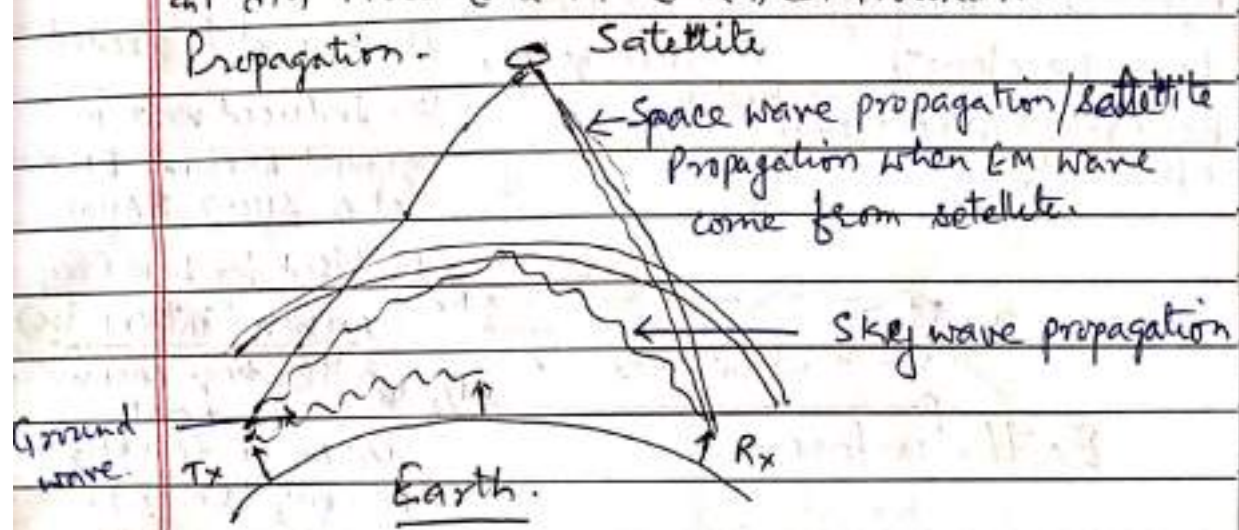 Propagation.
Satettite
Space wave propagation/satettite
Propagation when EM wave
come from setellite.
Skey wave propagation
Ground
wave.
Tx
Rx
Earth.